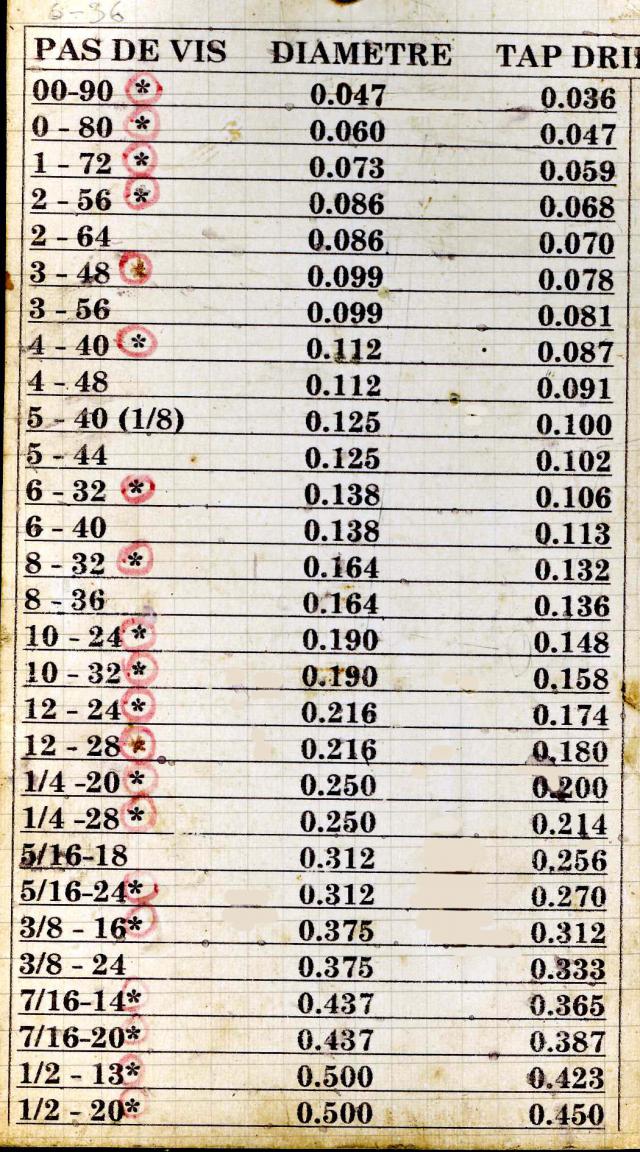 6-36
PAS DE VIS DIAMETRE TAP DRI
00-90 * 0.047 0.036
0 - 80 * 0.060 0.047
1 - 72 * 0.073 0.059
2 - 56 * 0.086 0.068
2 - 64 0.086 0.070
3 - 48 * 0.099 0.078
3 - 56 0.099 0.081
4 - 40 * 0.112 0.087
4 - 48 0.112 0.091
5 - 40 (1/8) 0.125 0.100
5 - 44 0.125 0.102
6 - 32 * 0.138 0.106
6 - 40 0.138 0.113
8 - 32 * 0.164 0.132
8 - 36 0.164 0.136
10 - 24 * 0.190 0.148
10 - 32 * 0.190 0.158
12 - 24 * 0.216 0.174
12 - 28 * 0.216 0.180
1/4 -20 * 0.250 0.200
1/4 -28 * 0.250 0.214
5/16-18 0.312 0.256
5/16-24* 0.312 0.270
3/8 - 16* 0.375 0.312
3/8 - 24 0.375 0.333
7/16-14* 0.437 0.365
7/16-20* 0.437 0.387
1/2 - 13* 0.500 0.423
1/2 - 20* 0.500 0.450